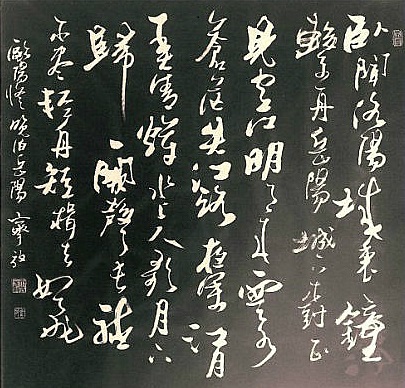 臥聞洛陽城裏鐘
繫舟岳陽城下樹正
見空江明月來雲水
蒼茫失江路夜深江月
弄清輝水上人歌月下
歸一闋聲長聽
不尽輕舟短楫去如飛
歐陽修晚泊岳陽